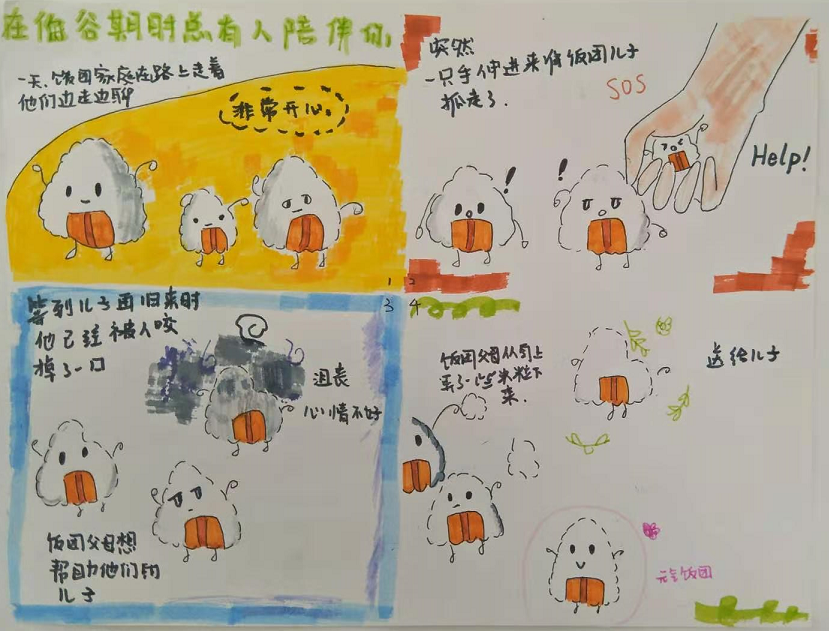 在低谷期时总有人陪伴你
一天、饭团家庭在路上走着
他们边走边聊
非常开心。
突然
一只手伸进来将饭团儿子
抓走了.
SOS
Help!
1 2
3 4
等到儿子再归来时
他已经被人咬
掉了一口
沮丧
心情不好
饭团父母想
帮助他们的
儿子
饭团父母从身上
弄了一些米粒下
来.
送给儿子
饭团